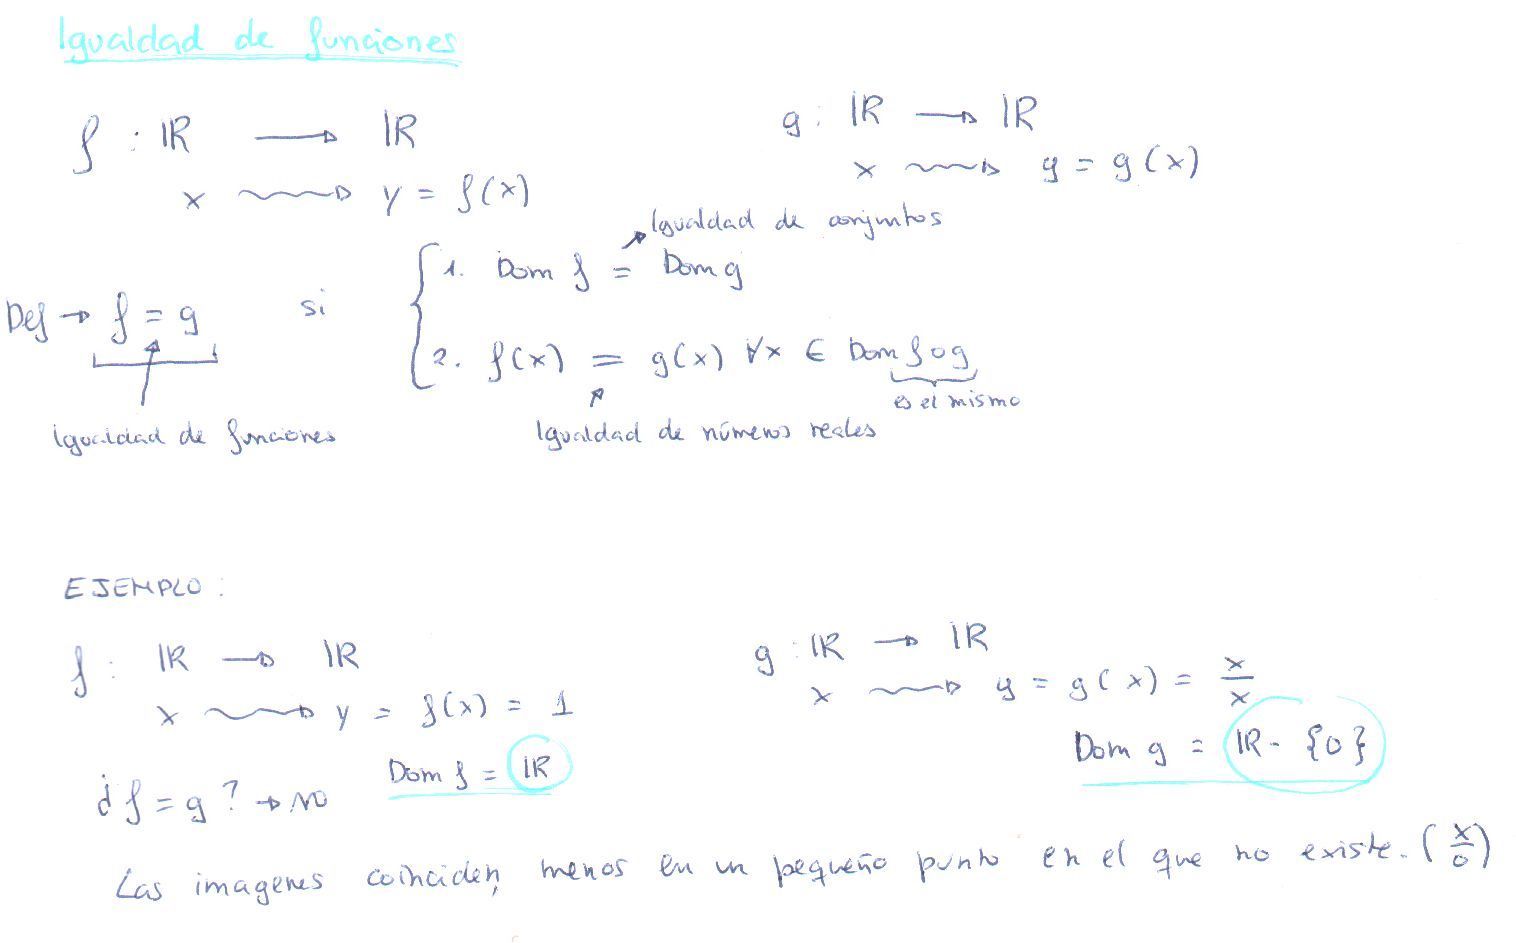 Igualdad de funciones
f : ℝ → ℝ
x ⇝ y = f(x)
g : ℝ → ℝ
x ⇝ y = g(x)
Def → f = g si
Igualdad de funciones
Igualdad de conjuntos
1. Dom f = Dom g
2. f(x) = g(x) ∀x ∈ Dom f o g
es el mismo
Igualdad de números reales
EJEMPLO:
f : ℝ → ℝ
x ⇝ y = f(x) = 1
Dom f = ℝ
g : ℝ → ℝ
x ⇝ y = g(x) = x/x
Dom g = ℝ - {0}
¿f = g? → NO
Las imagenes coinciden, menos en un pequeño punto en el que no existe. (x/0)